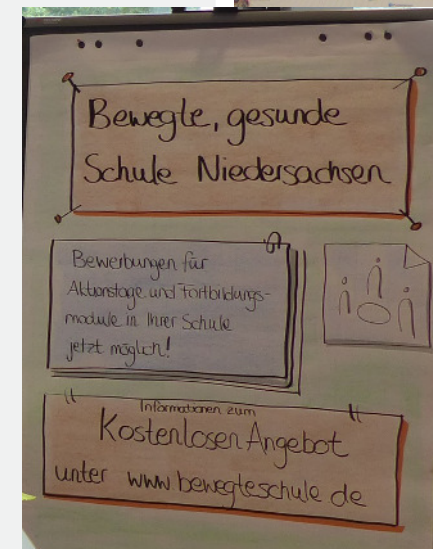 Bewegte, gesunde
Schule Niedersachsen
Bewerbungen für
Aktionstage und Fortbildungs-
module in Ihrer Schule
jetzt möglich!
Informationen zum
Kostenlosen Angebot
unter www.bewegteschule.de